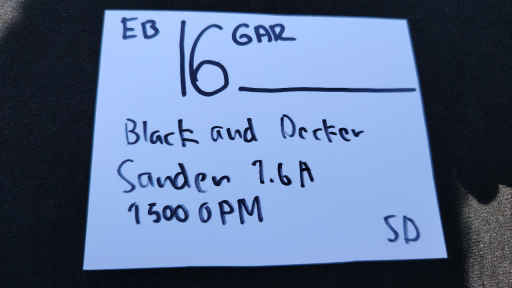 EB 16 GAR
Black and Decker
Sander 1.6 A
1500 OPM
SD